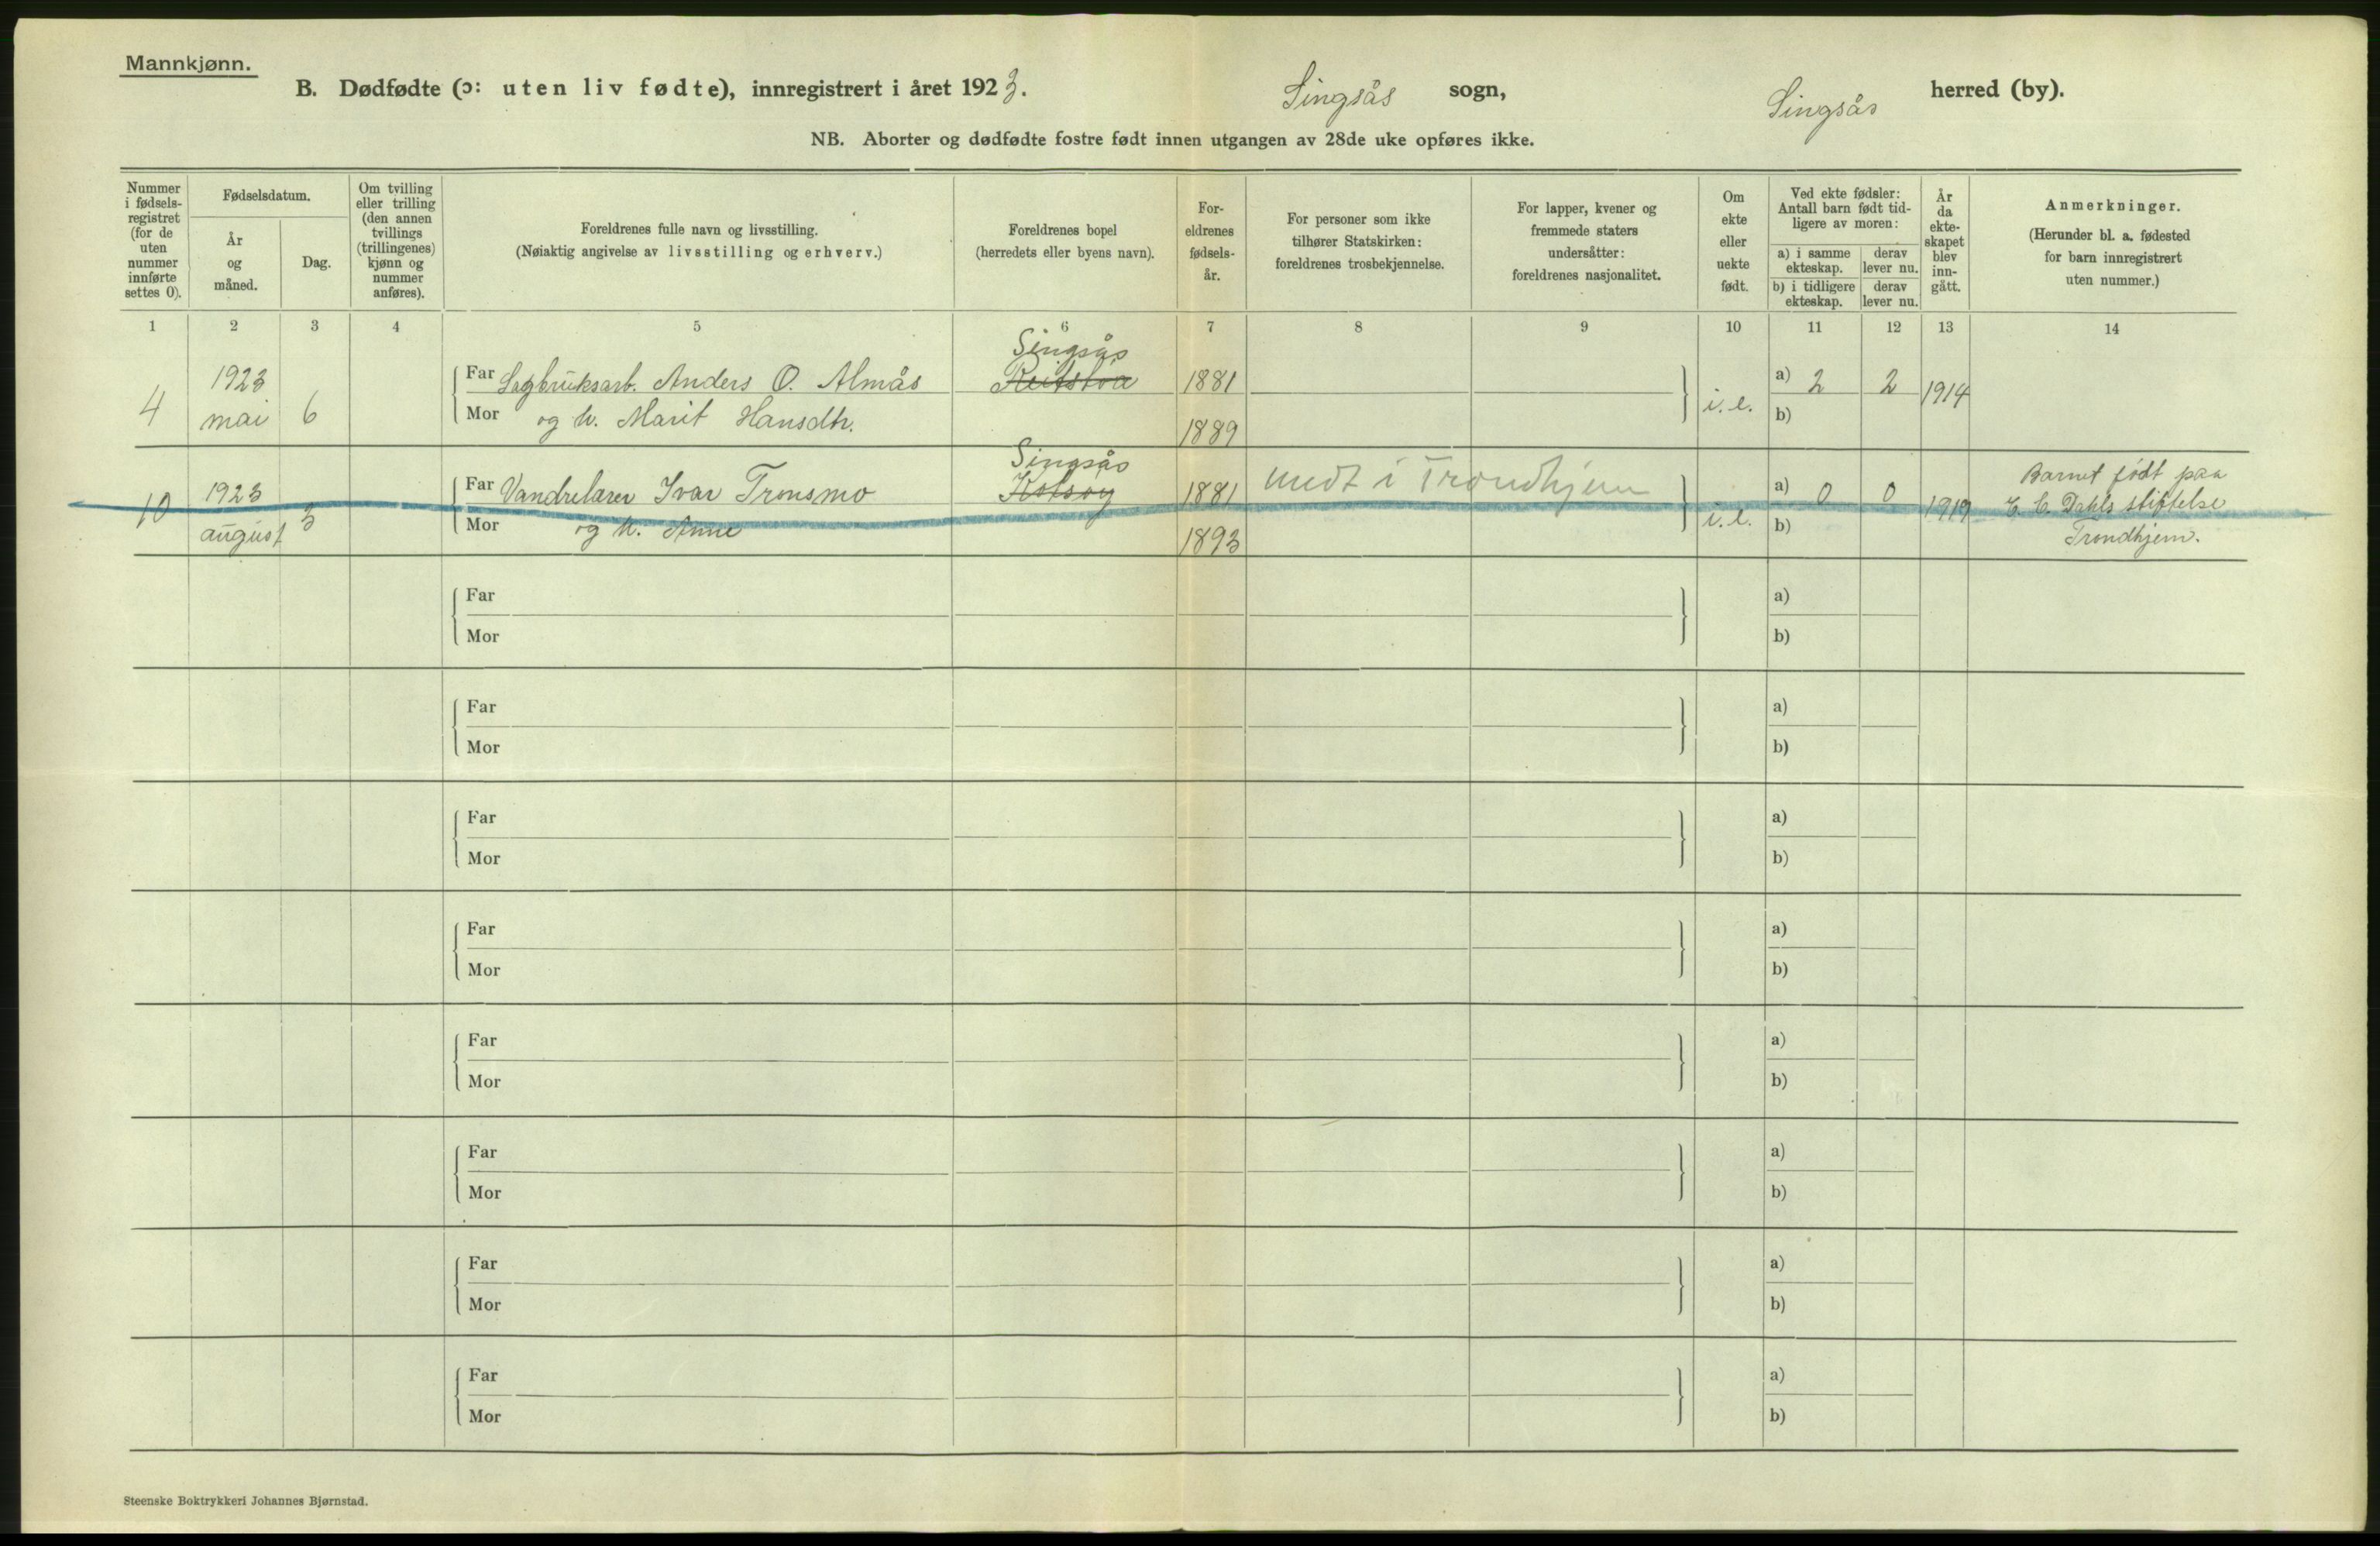 Mannkjønn.
B. Dødfødte (ɔ: uten liv fødte), innregistrert i året 1923. Singsås sogn, Singsås herred (by).
NB. Aborter og dødfødte fostre født innen utgangen av 28de uke opføres ikke.
Nummer i fødsels-registret (for de uten nummer innførte settes 0).
Fødselsdatum.
År og måned.
Dag.
Om tvilling eller trilling (den annen tvillings (trillingenes) kjønn og nummer anføres).
Foreldrenes fulle navn og livsstilling.
(Nøiaktig angivelse av livsstilling og erhverv.)
Foreldrenes bopel
(herredets eller byens navn).
For-eldrenes fødsels-år.
For personer som ikke tilhører Statskirken: foreldrenes trosbekjennelse.
For lapper, kvener og fremmede staters undersåtter: foreldrenes nasjonalitet.
Om ekte eller uekte født.
Ved ekte fødsler: Antall barn født tid-ligere av moren:
a) i samme ekteskap.
derav lever nu.
b) i tidligere ekteskap.
derav lever nu.
År da ekte-skapet blev inn-gått.
Anmerkninger.
(Herunder bl. a. fødested for barn innregistrert uten nummer.)
1 2 3 4 5 6 7 8 9 10 11 12 13 14
Singsås
4 1923 mai 6 Far Sagbruksarb. Anders O. Almås 1881 i. e. a) 2 2 1914
Mor og h. Marit Hansdtr. 1889 b)
Singsås
10 1923 august 3 Far Vandrelærer Ivar Tronsmo Kotsøy 1881 medt i Trondhjem i. e. a) 0 0 1919 Barnet født paa
E. C. Dahls stiftelse
Mor og h. Anne 1893 b) Trondhjem.
Far a)
Mor b)
Far a)
Mor b)
Far a)
Mor b)
Far a)
Mor b)
Far a)
Mor b)
Far a)
Mor b)
Far a)
Mor b)
Far a)
Mor b)
Steenske Boktrykkeri Johannes Bjørnstad.